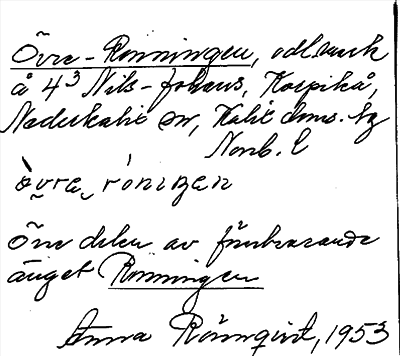 Övre-Rönningen, odl.mark
å 4³ Nils-Johans, Korpikå,
Nederkalix sn, Kalix doms. tg
Norrb. l
òvrα róniŋen
Övre delen av fönvarande
änget Rönningen
Anna Rönnqvist, 1953